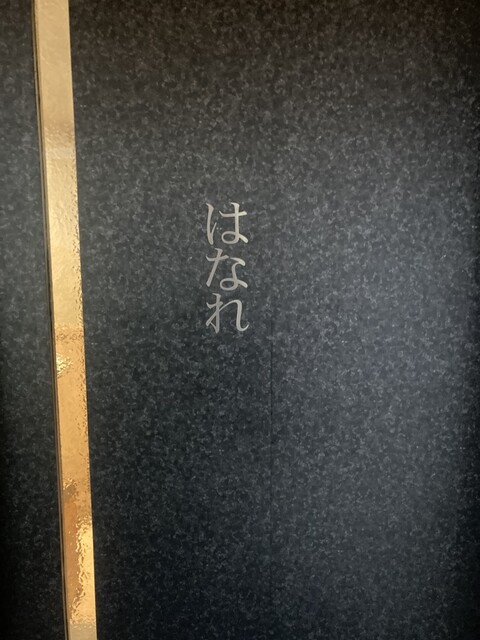 はなれ